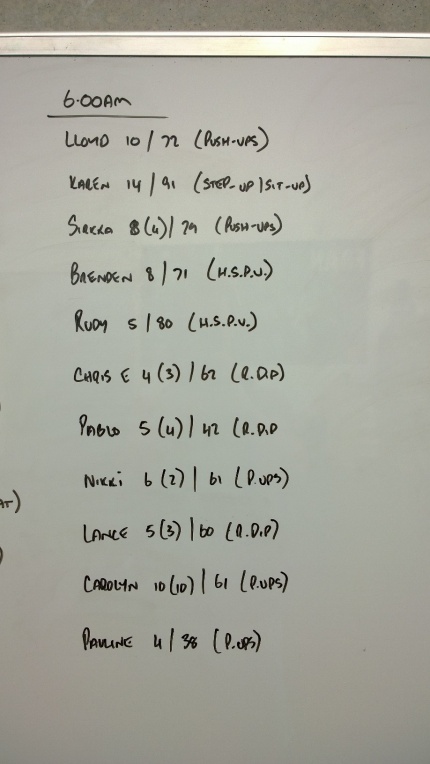 6:00AM
LLOYD 10 / 72 (PUSH-UPS)
KAREN 14 / 91 (STEP-UP | SIT-UP)
8 (4) | 79 (PUSH-UPS)
BRENDEN 8 / 71 (H.S.P.U.)
RUDY 5 / 80 (H.S.P.U.)
CHRIS E 4 (3) / 62 (R.DIP)
PABLO 5 (4) | 42 (R.DIP
NIKKI 6 (2) | 61 (P.UPS)
AT)
LANCE 5 (3) | 60 (R.DIP)
)
CAROLYN 10 (10) | 61 (P.UPS)
PAULINE 4 / 38 (P.UPS)